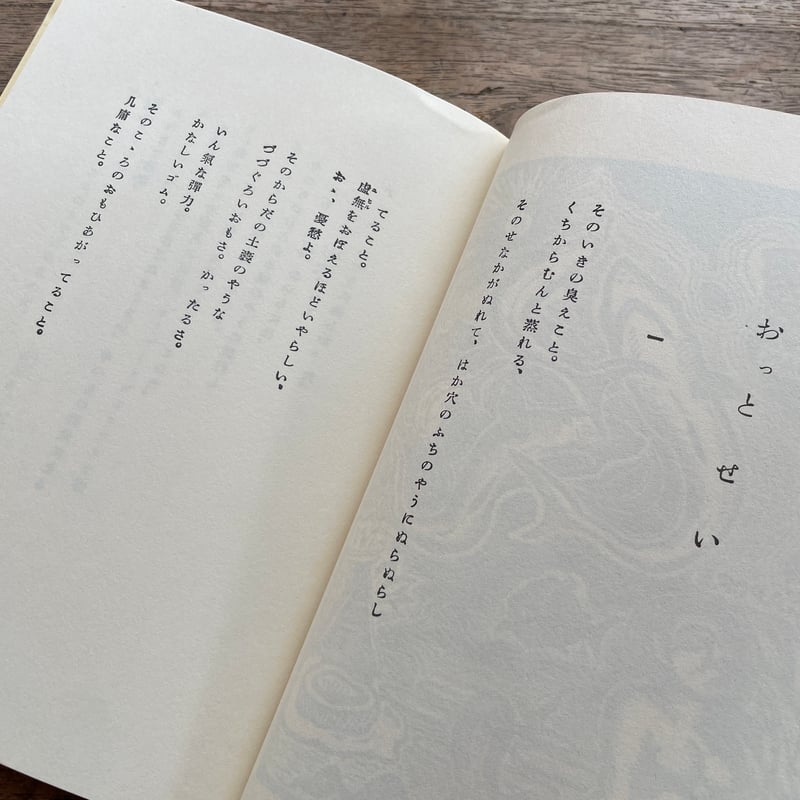 おっとせい
一
そのいきの臭えこと。
くちからむんと蒸れる、
そのせなかがぬれて、はか穴のふちのやうにぬらぬらし
てること。
虚無をおぼえるほどいやらしい、
おゝ、憂愁よ。
そのからだの土嚢のやうな
づづぐろいおもさ。かったるさ。
いん氣な彈力。
かなしいゴム。
そのこゝろのおもひあがってること。
凡庸なこと。